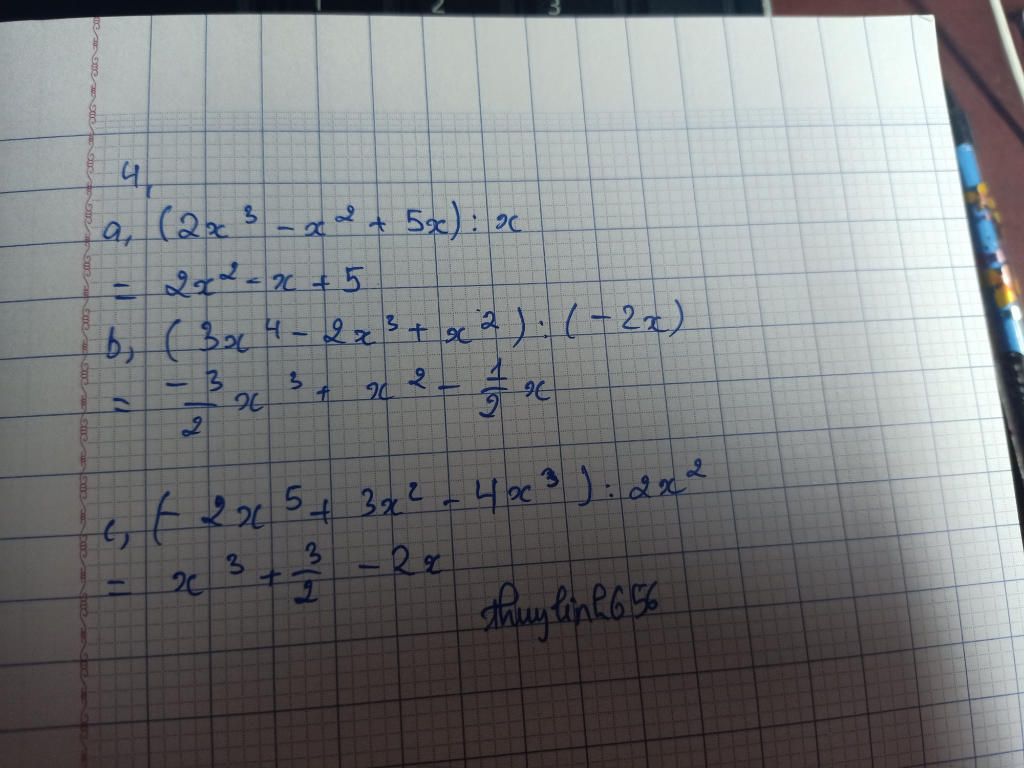 1 2 3
4,
a, (2x³ - x² + 5x) : x
= 2x² - x + 5
b, (3x⁴ - 2x³ + x²) : (-2x)
= -3/2 x³ + x² - 1/2 x
c, (- 2x⁵ + 3x² - 4x³) : 2x²
= x³ + 3/2 - 2x
thuylinh656